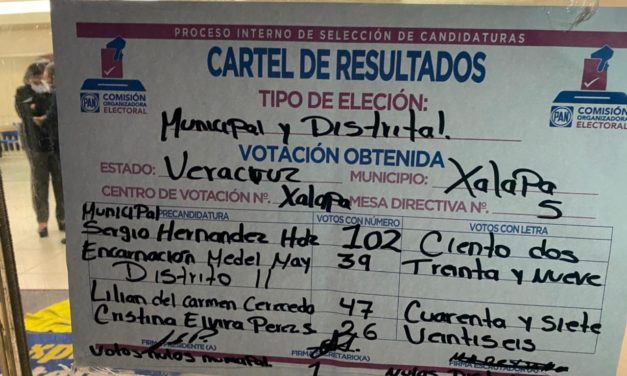 PROCESO INTERNO DE SELECCIÓN DE CANDIDATURAS
CARTEL DE RESULTADOS
PAN COMISIÓN ORGANIZADORA ELECTORAL
PAN COMISIÓN ORGANIZADORA ELECTORAL
TIPO DE ELECIÓN:
Municipal y Distrital.
VOTACIÓN OBTENIDA
ESTADO: Veracruz MUNICIPIO: Xalapa
CENTRO DE VOTACIÓN Nº. Xalapa MESA DIRECTIVA Nº. 5
Municipal
PRECANDIDATURA VOTOS CON NÚMERO VOTOS CON LETRA
Sergio Hernandez Hdz 102 Ciento dos
Encarnación Medel May 39 Tranta y Nueve
Distrito 11
Lilian del Carmen 47 Cuarenta y Siete
Cristina Elvira 26 Vantiseis
FIRMA PRESIDENTE(A)
Votos Nulos municipal 1